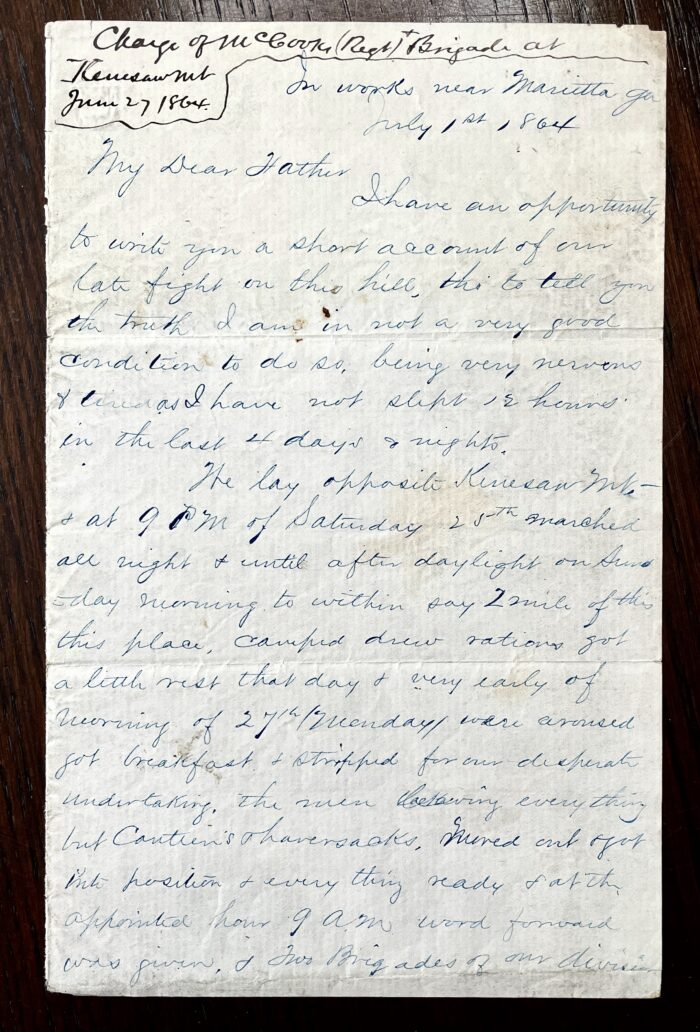 Charge of McCooks (Regt) + Brigade at
Kenesaw Mt
June 27 1864.
In works near Marietta Ga
July 1st 1864
My Dear Father
I have an opportunity
to write you a short account of our
late fight on this hill, tho to tell you
the truth I am in not a very good
condition to do so, being very nervous
& tired as I have not slept 12 hours
in the last 4 days & nights.
We lay opposite Kenesaw Mt.
& at 9 PM of Saturday 25th marched
all night & until after daylight on Sun
-day morning to within say 2 mile of this
this place, camped drew rations got
a little rest that day & very early of
morning of 27th (Monday) were aroused
got breakfast & stripped for our desperate
undertaking, the men leaving everything
but Canteens & haversacks. Moved out & got
into position & every thing ready & at the
appointed hour 9 A.M word forward
was given, & Two Brigades of our division